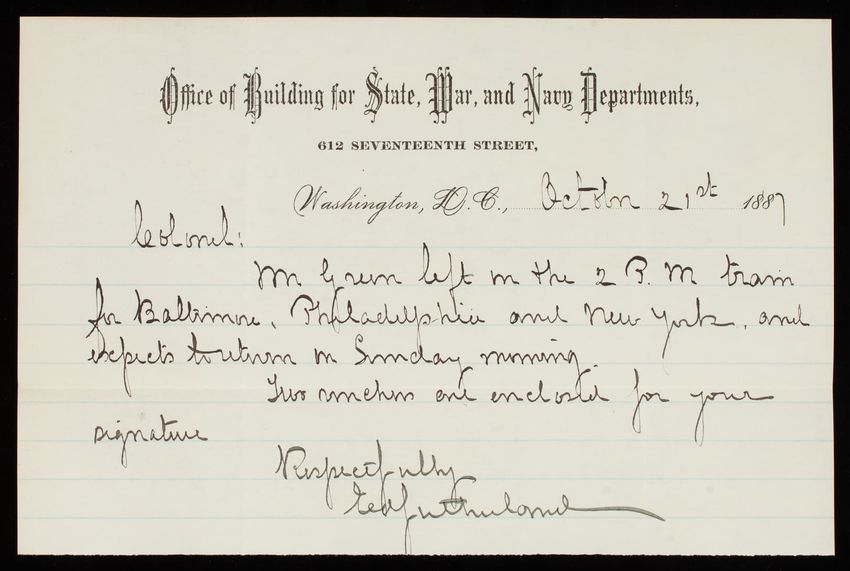 Office of Building for State, War, and Navy Departments,
612 SEVENTEENTH STREET,
Washington, D.C., October 21st 1887
Colonel:
Mr Green left on the 2 P.M train
for Baltimore, Philadelphia and New York, and
expects to return on Sunday morning.
Two vouchers are enclosed for your
signature
Respectfully